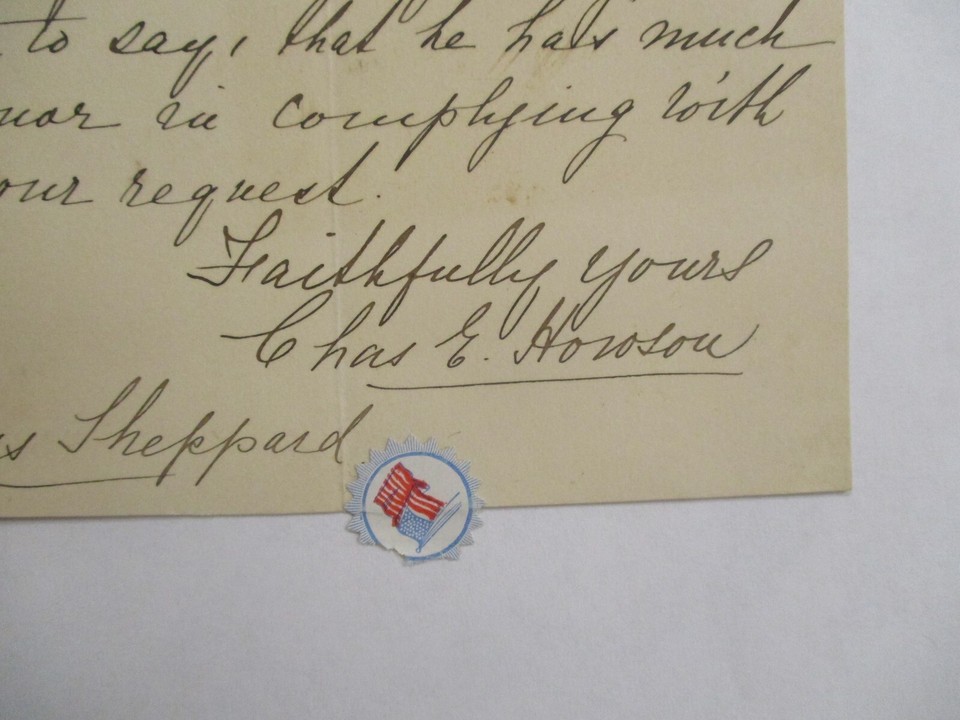 to say, that he has much
nor in complying with
our request.
Faithfully yours
Chas E. Howson
s Sheppard